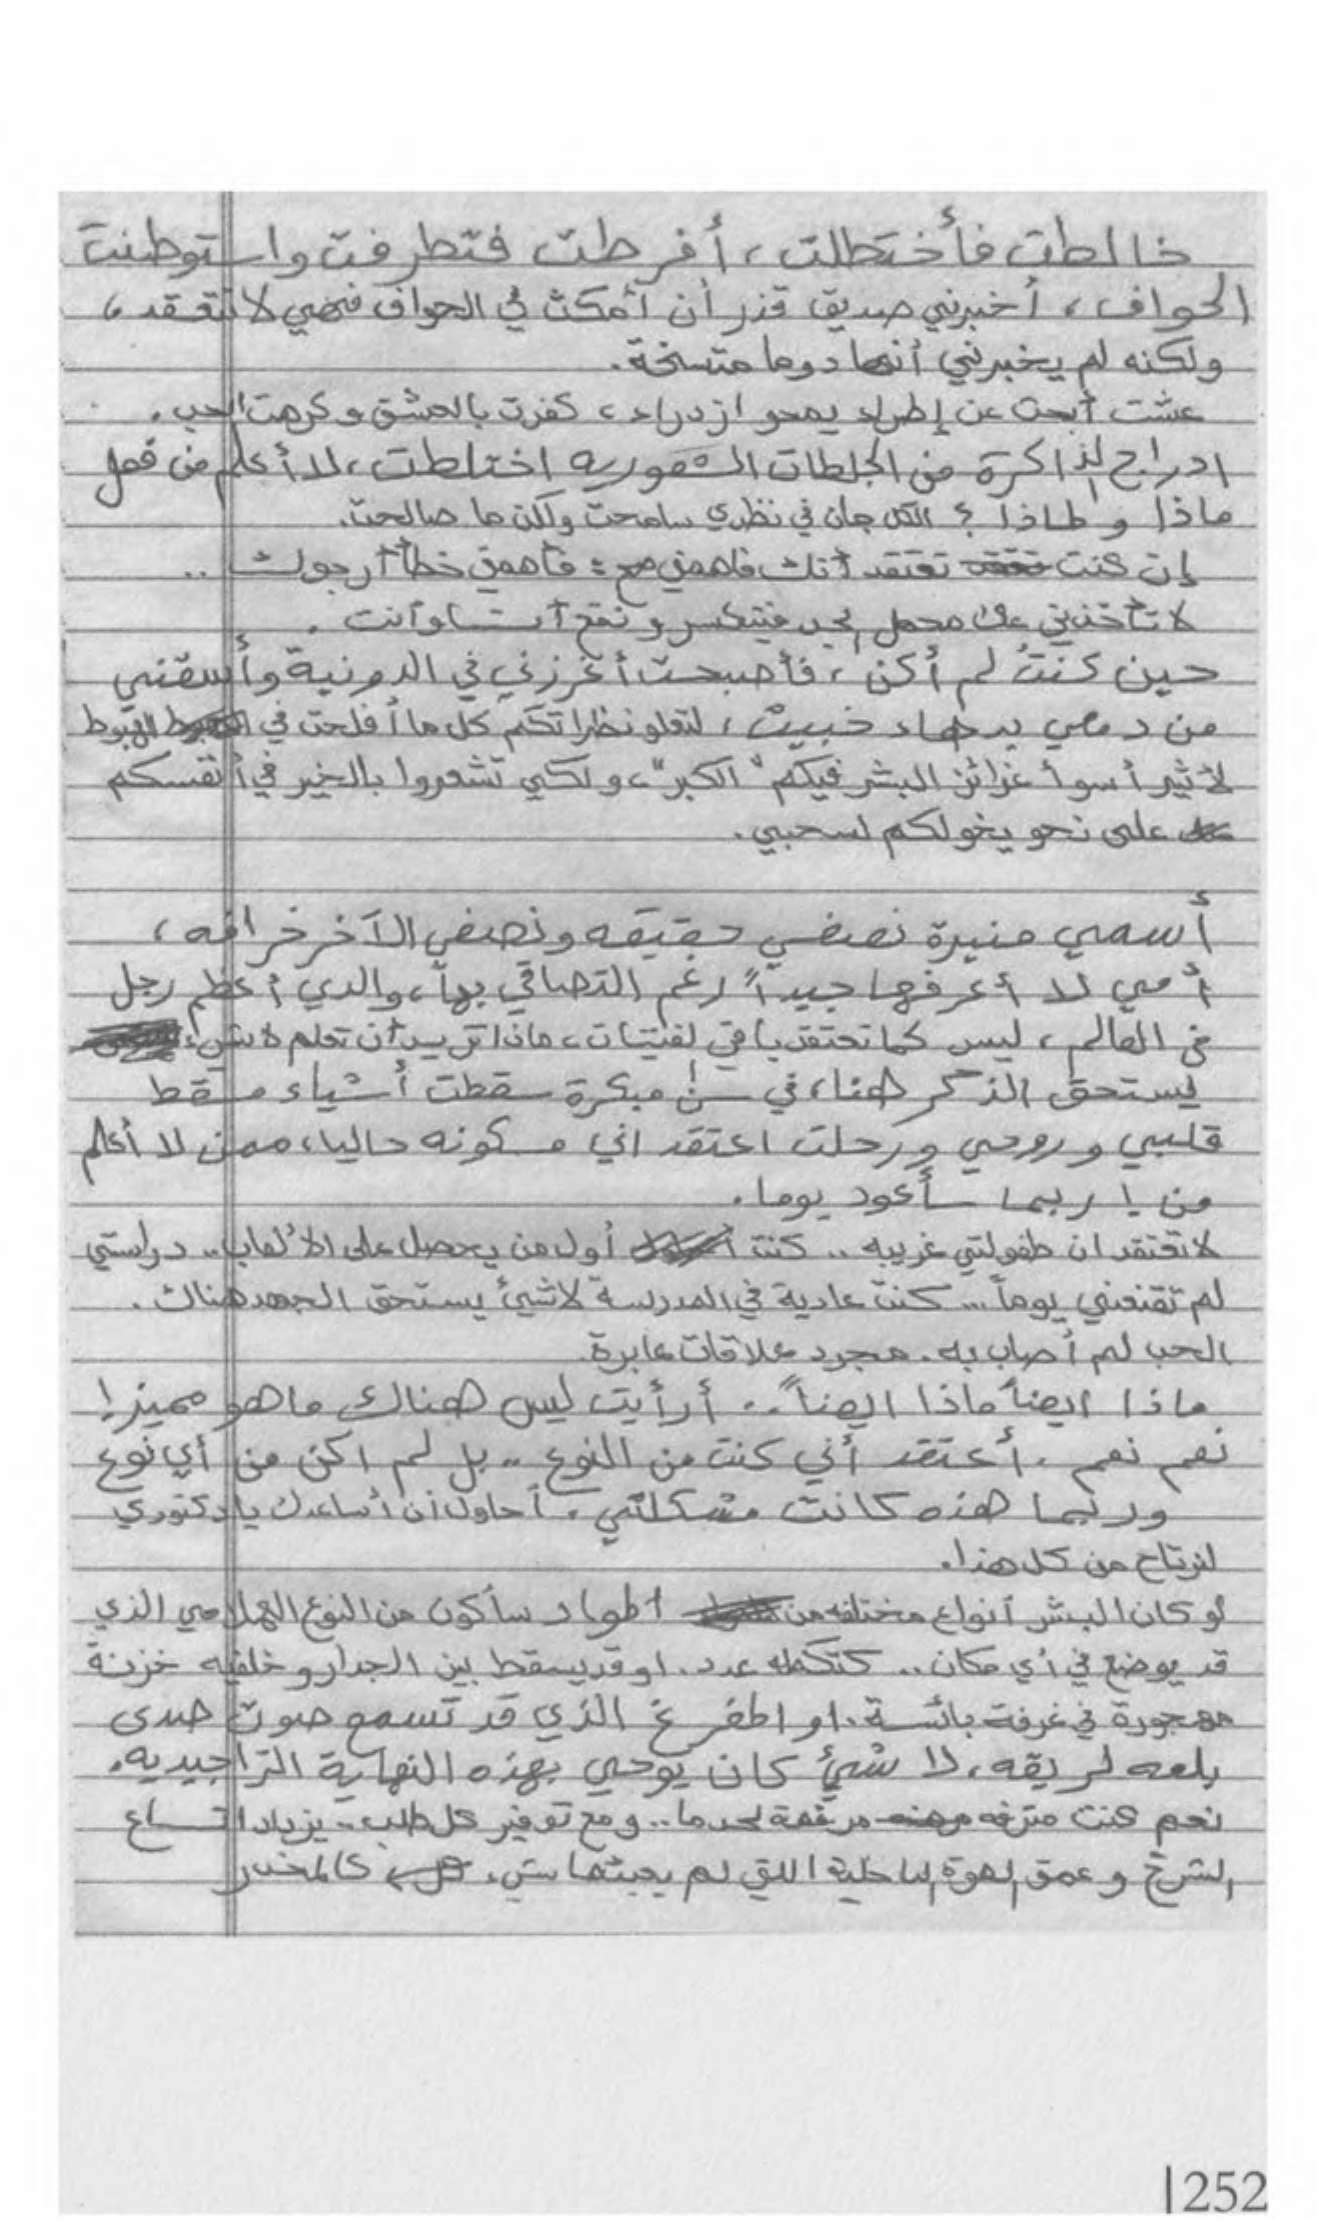 خالطت فأختطلت، أفرطت فتطرفت واستوطنت
الحواف، أخبرني صديق قذر أن أمكث في الحواف فهي لا تتعقد،
ولكنه لم يخبرني أنها دوما متسخة.
عشت أبحث عن إطراء يمحو ازدراء، كفرت بالعشق وكرهت الحب.
ادراج لذاكرة من الجلطات الشعوريه اختلطت، لا أعلم من فعل
ماذا ولماذا؟ الكل جان في نظري سامحت ولكن ما صالحت.
إن كنت تعتقد أنك فاهمني صح: فأهمني خطأ أرجوك..
لا تأخذني على محمل الجد فتنكسر ونقع أنا وأنت.
حين كنتُ لم أكن، فأصبحت أغرزني في الدونية وأسقني
من دمعي بدهاء خبيث، لتعلو نظراتكم كل ما أفلحت في الهبوط
لأثير أسوأ غرائز البشر فيكم "الكبر"، ولكي تشعروا بالخير في أنفسكم
على نحو يخولكم لسحبي.
أسمي منيرة نصفي حقيقه ونصفي الآخر خرافه،
أمي لا أعرفها جيداً رغم التصاقي بها، والدي أعظم رجل
في العالم، ليس كما تعتقد باقي لفتيات، ماذا تريد أن تعلم لا شيء
ليستحق الذكر هنا، في سن مبكرة سقطت أشياء
قلبي وروحي ورحلت اعتقد اني مسكونه حاليا، ممن لا أعلم
من! ربما سأعود يوما.
لا تعتقد ان طفولتي غريبه.. كنت أول من يحصل على الألعاب.. دراستي
لم تقنعني يوماً... كنت عادية في المدرسة لا شيئ يستحق الجهد هناك.
الحب لم أصاب به. مجرد علاقات عابرة.
ماذا ايضاً ماذا ايضاً.. أرأيت ليس هناك ما هو مميز!
نعم نعم. أعتقد أني كنت من النوع.. بل لم اكن من أي نوع
وربما هذه كانت مشكلتي. أحاول أن أساعدك يا دكتوري
لنرتاح من كل هذا.
لو كان البشر أنواع مختلفه من المواد سأكون من النوع الهلامي الذي
قد يوضع في أي مكان.. كتكمله عدد. او قد يسقط بين الجدار وخلفيه خزنة
مهجورة في غرفة بائسة. او المفرغ الذي قد تسمع صوت صدى
بلعه لريقه، لا شيئ كان يوحي بهذه النهاية التراجيديه.
نعم كنت مترفه مرفهة لحد ما.. ومع توفير كل طلب.. يزداد اتساع
الشرخ وعمق الهوة الداخلية اللتي لم يجبثها شيء. كالمخدر
|252